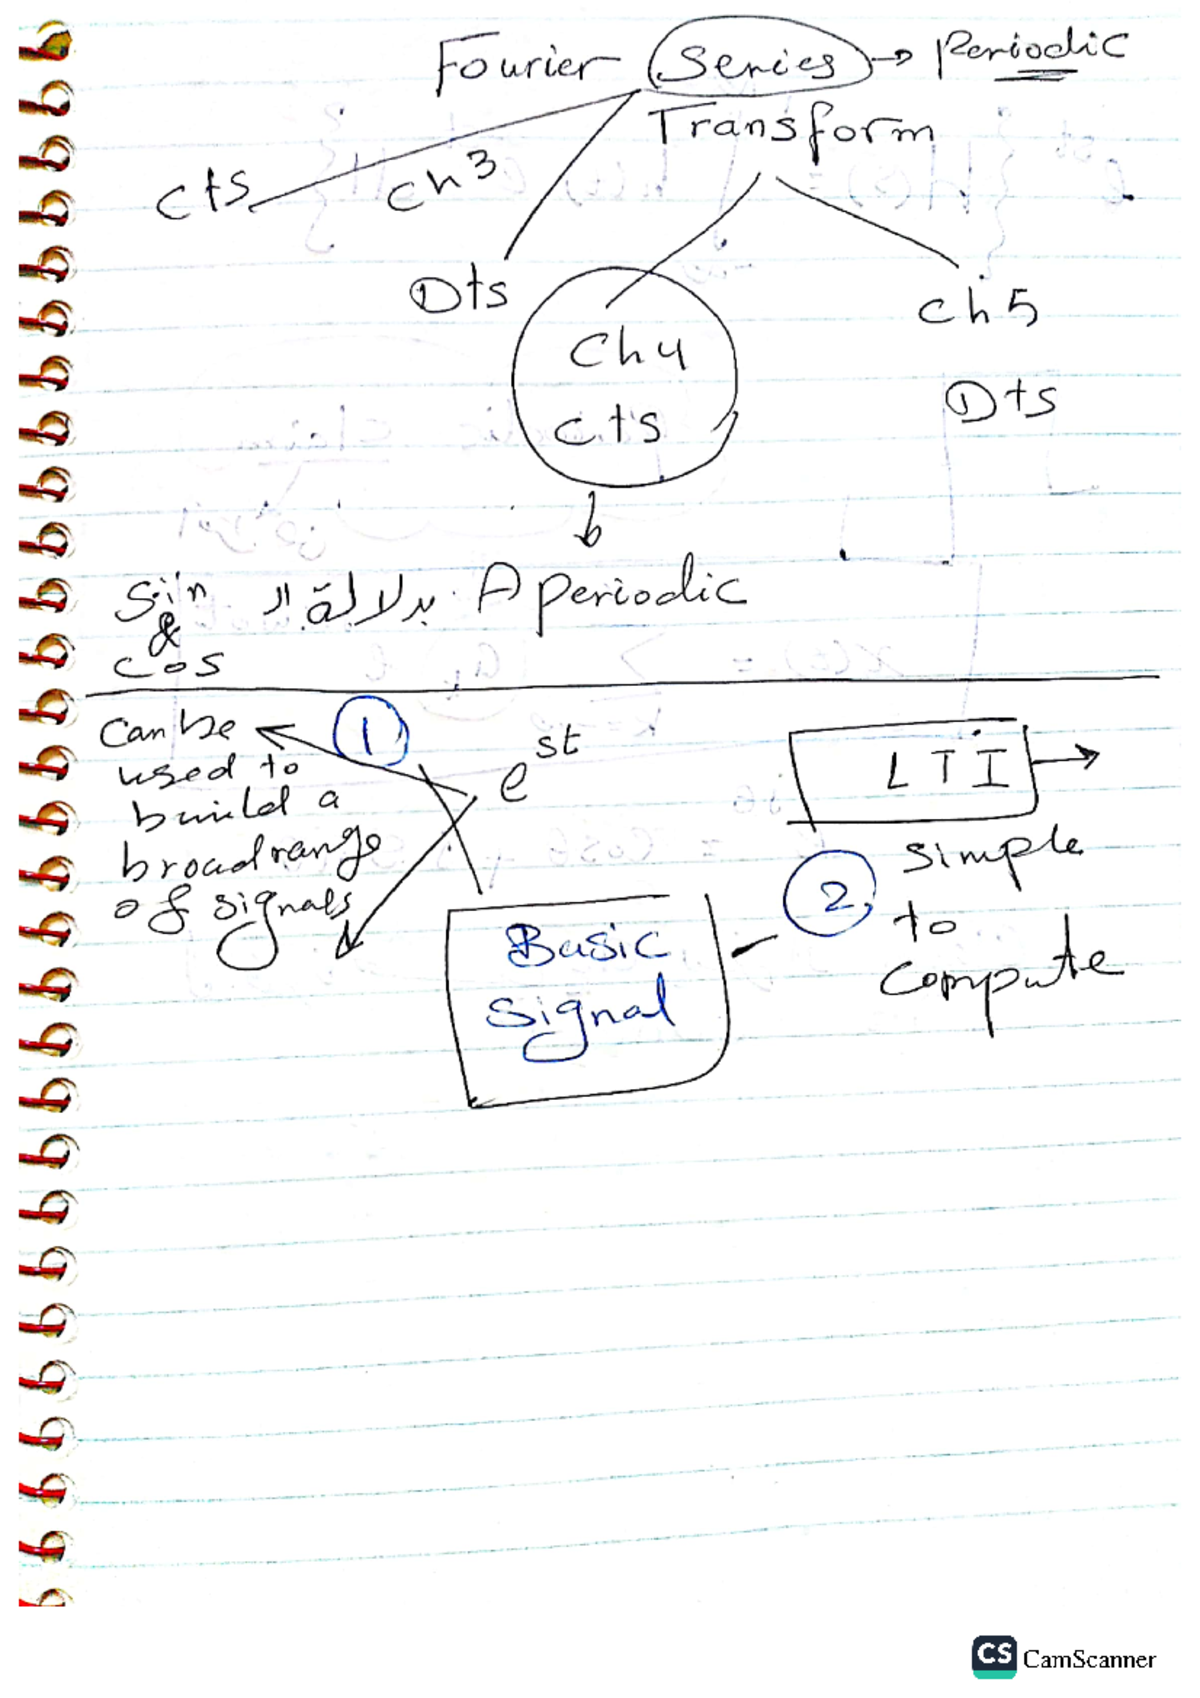 Fourier Series → Periodic
Transform
cts ch3
Dts
Ch4
cts
ch5
Dts
Aperiodic بدلالة ال Sin
&
cos
Can be
used to
build a
broad range
of signals
1
e^st
LTI
Basic
Signal
2
simple
to
compute
CS CamScanner